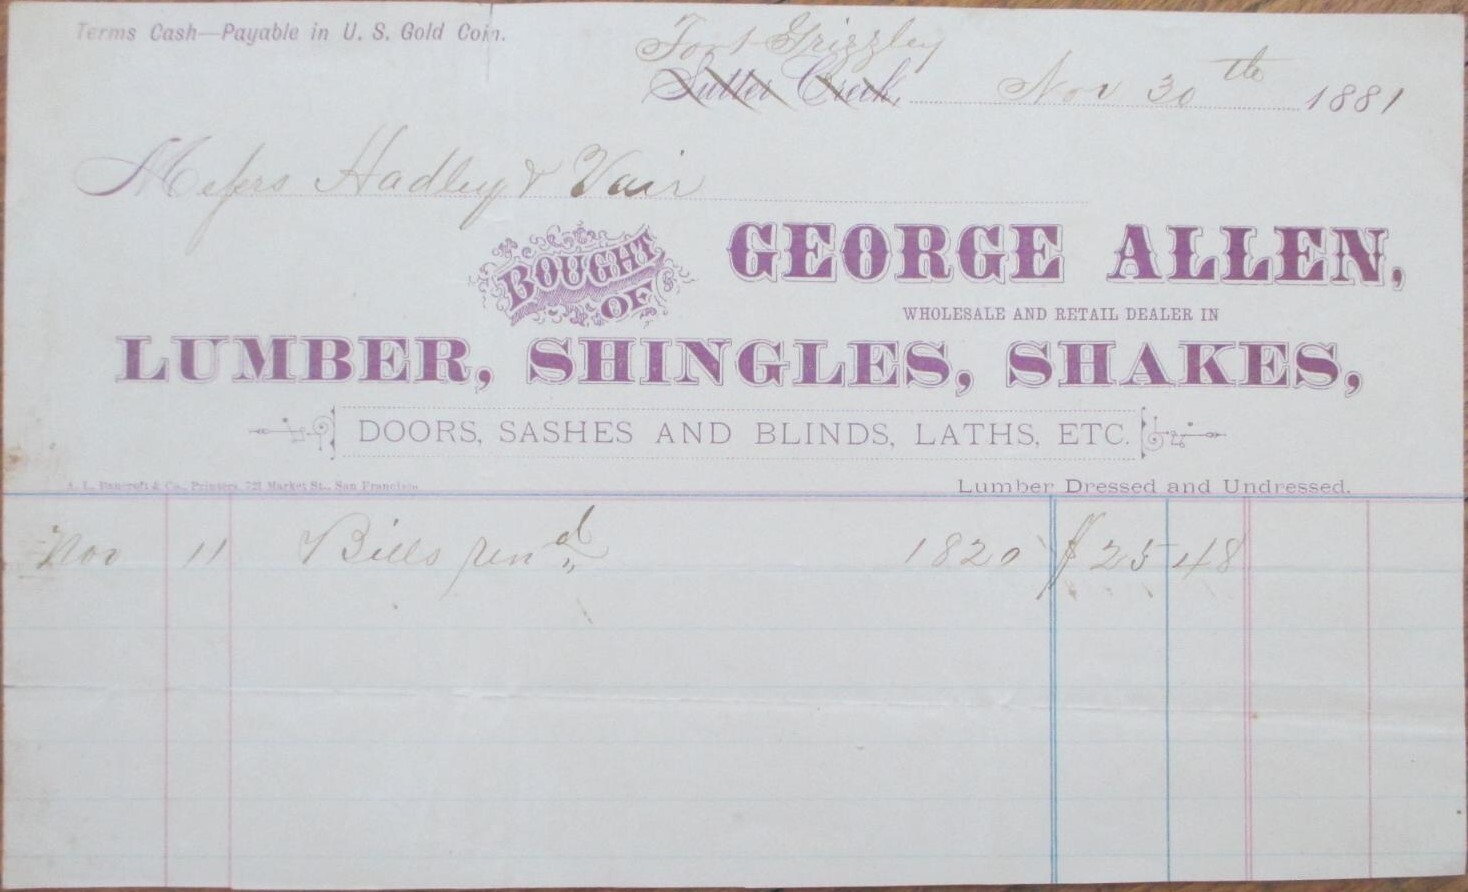 Terms Cash—Payable in U. S. Gold Coin.
Fort Grizzley
Sutter Creek, Nov 30th 1881
Messrs Hadley & Vair
BOUGHT OF
GEORGE ALLEN,
WHOLESALE AND RETAIL DEALER IN
LUMBER, SHINGLES, SHAKES,
DOORS, SASHES AND BLINDS, LATHS, ETC.
A. L. Bancroft & Co., Printers, 721 Market St., San Francisco
Lumber Dressed and Undressed.
Nov 11 Bills rend 1820 $ 25 48